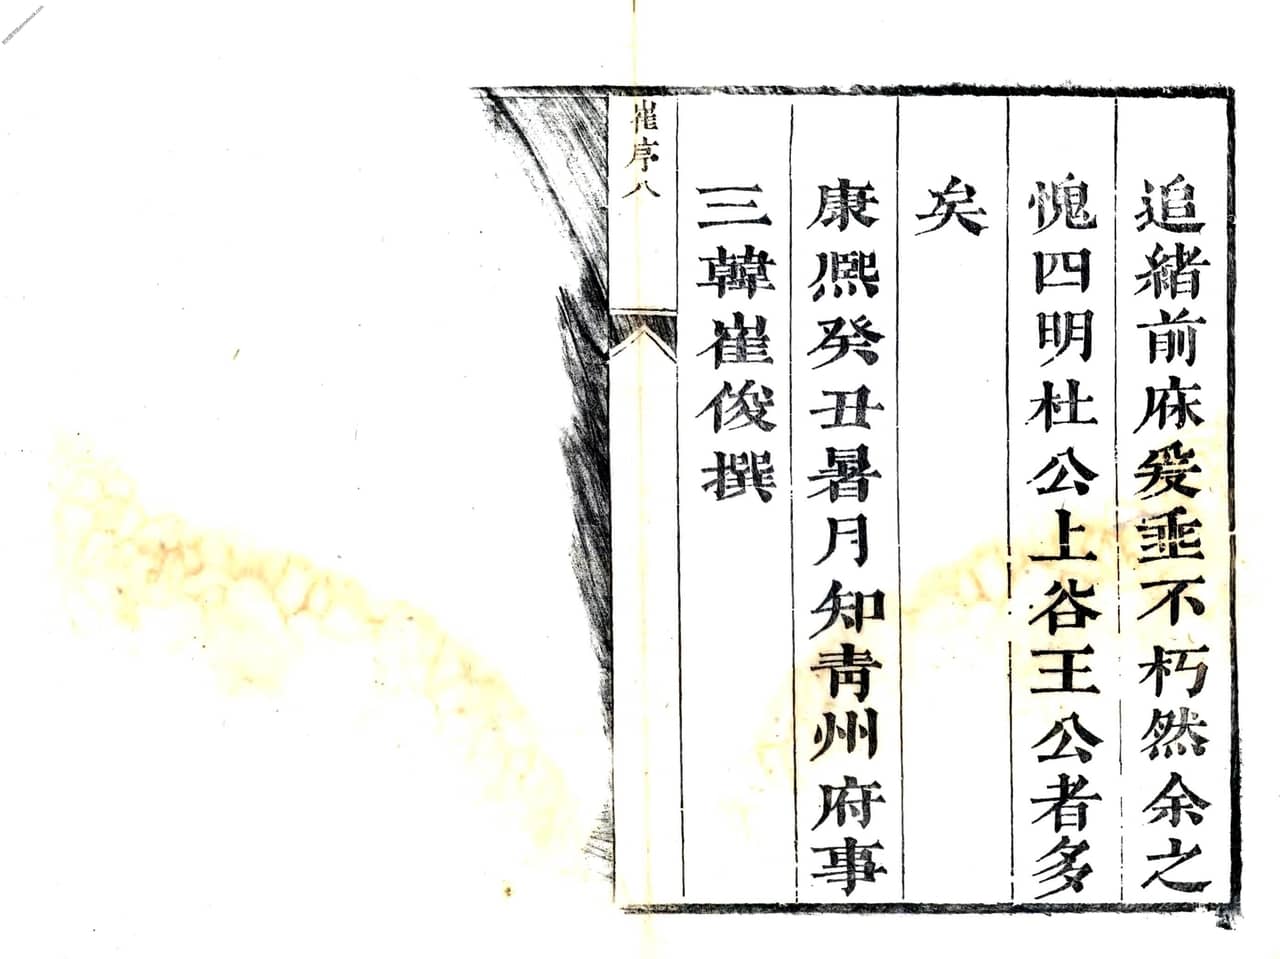 追緒前庥爰垂不朽然余之
愧四明杜公上谷王公者多
矣
康熙癸丑暑月知青州府事
三韓崔俊撰
崔序八